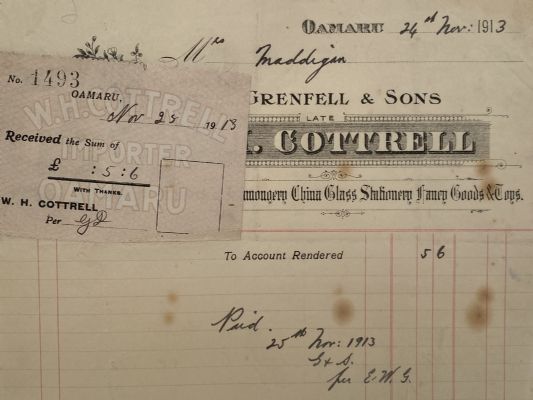 OAMARU 24th Nov: 1913
Mrs Maddigan
GRENFELL & SONS
LATE
H. COTTRELL
China Glass Stationery Fancy Goods & Toys.
To Account Rendered 5 6
Paid.
25th Nov: 1913
G & S.
per E. W. G.
No. 1493
OAMARU,
Nov 25 1913
W.H. COTTRELL
IMPORTER
OAMARU
Received the Sum of
£ : 5 : 6
WITH THANKS.
W. H. COTTRELL
Per